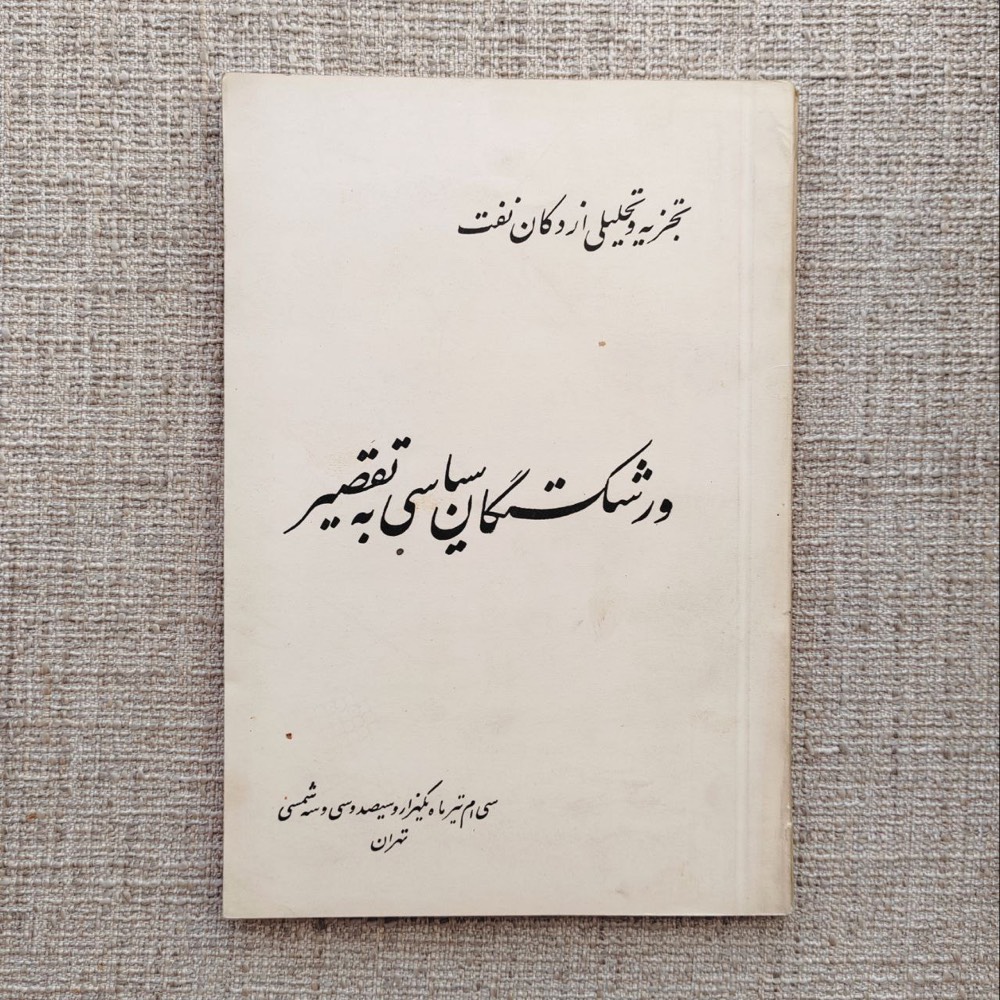 تجزیه و تحلیلی از دکان نفت
ورشکستگان سیاسی به تقصیر
سی ام تیر ماه یکهزار و سیصد و سی و سه شمسی
تهران